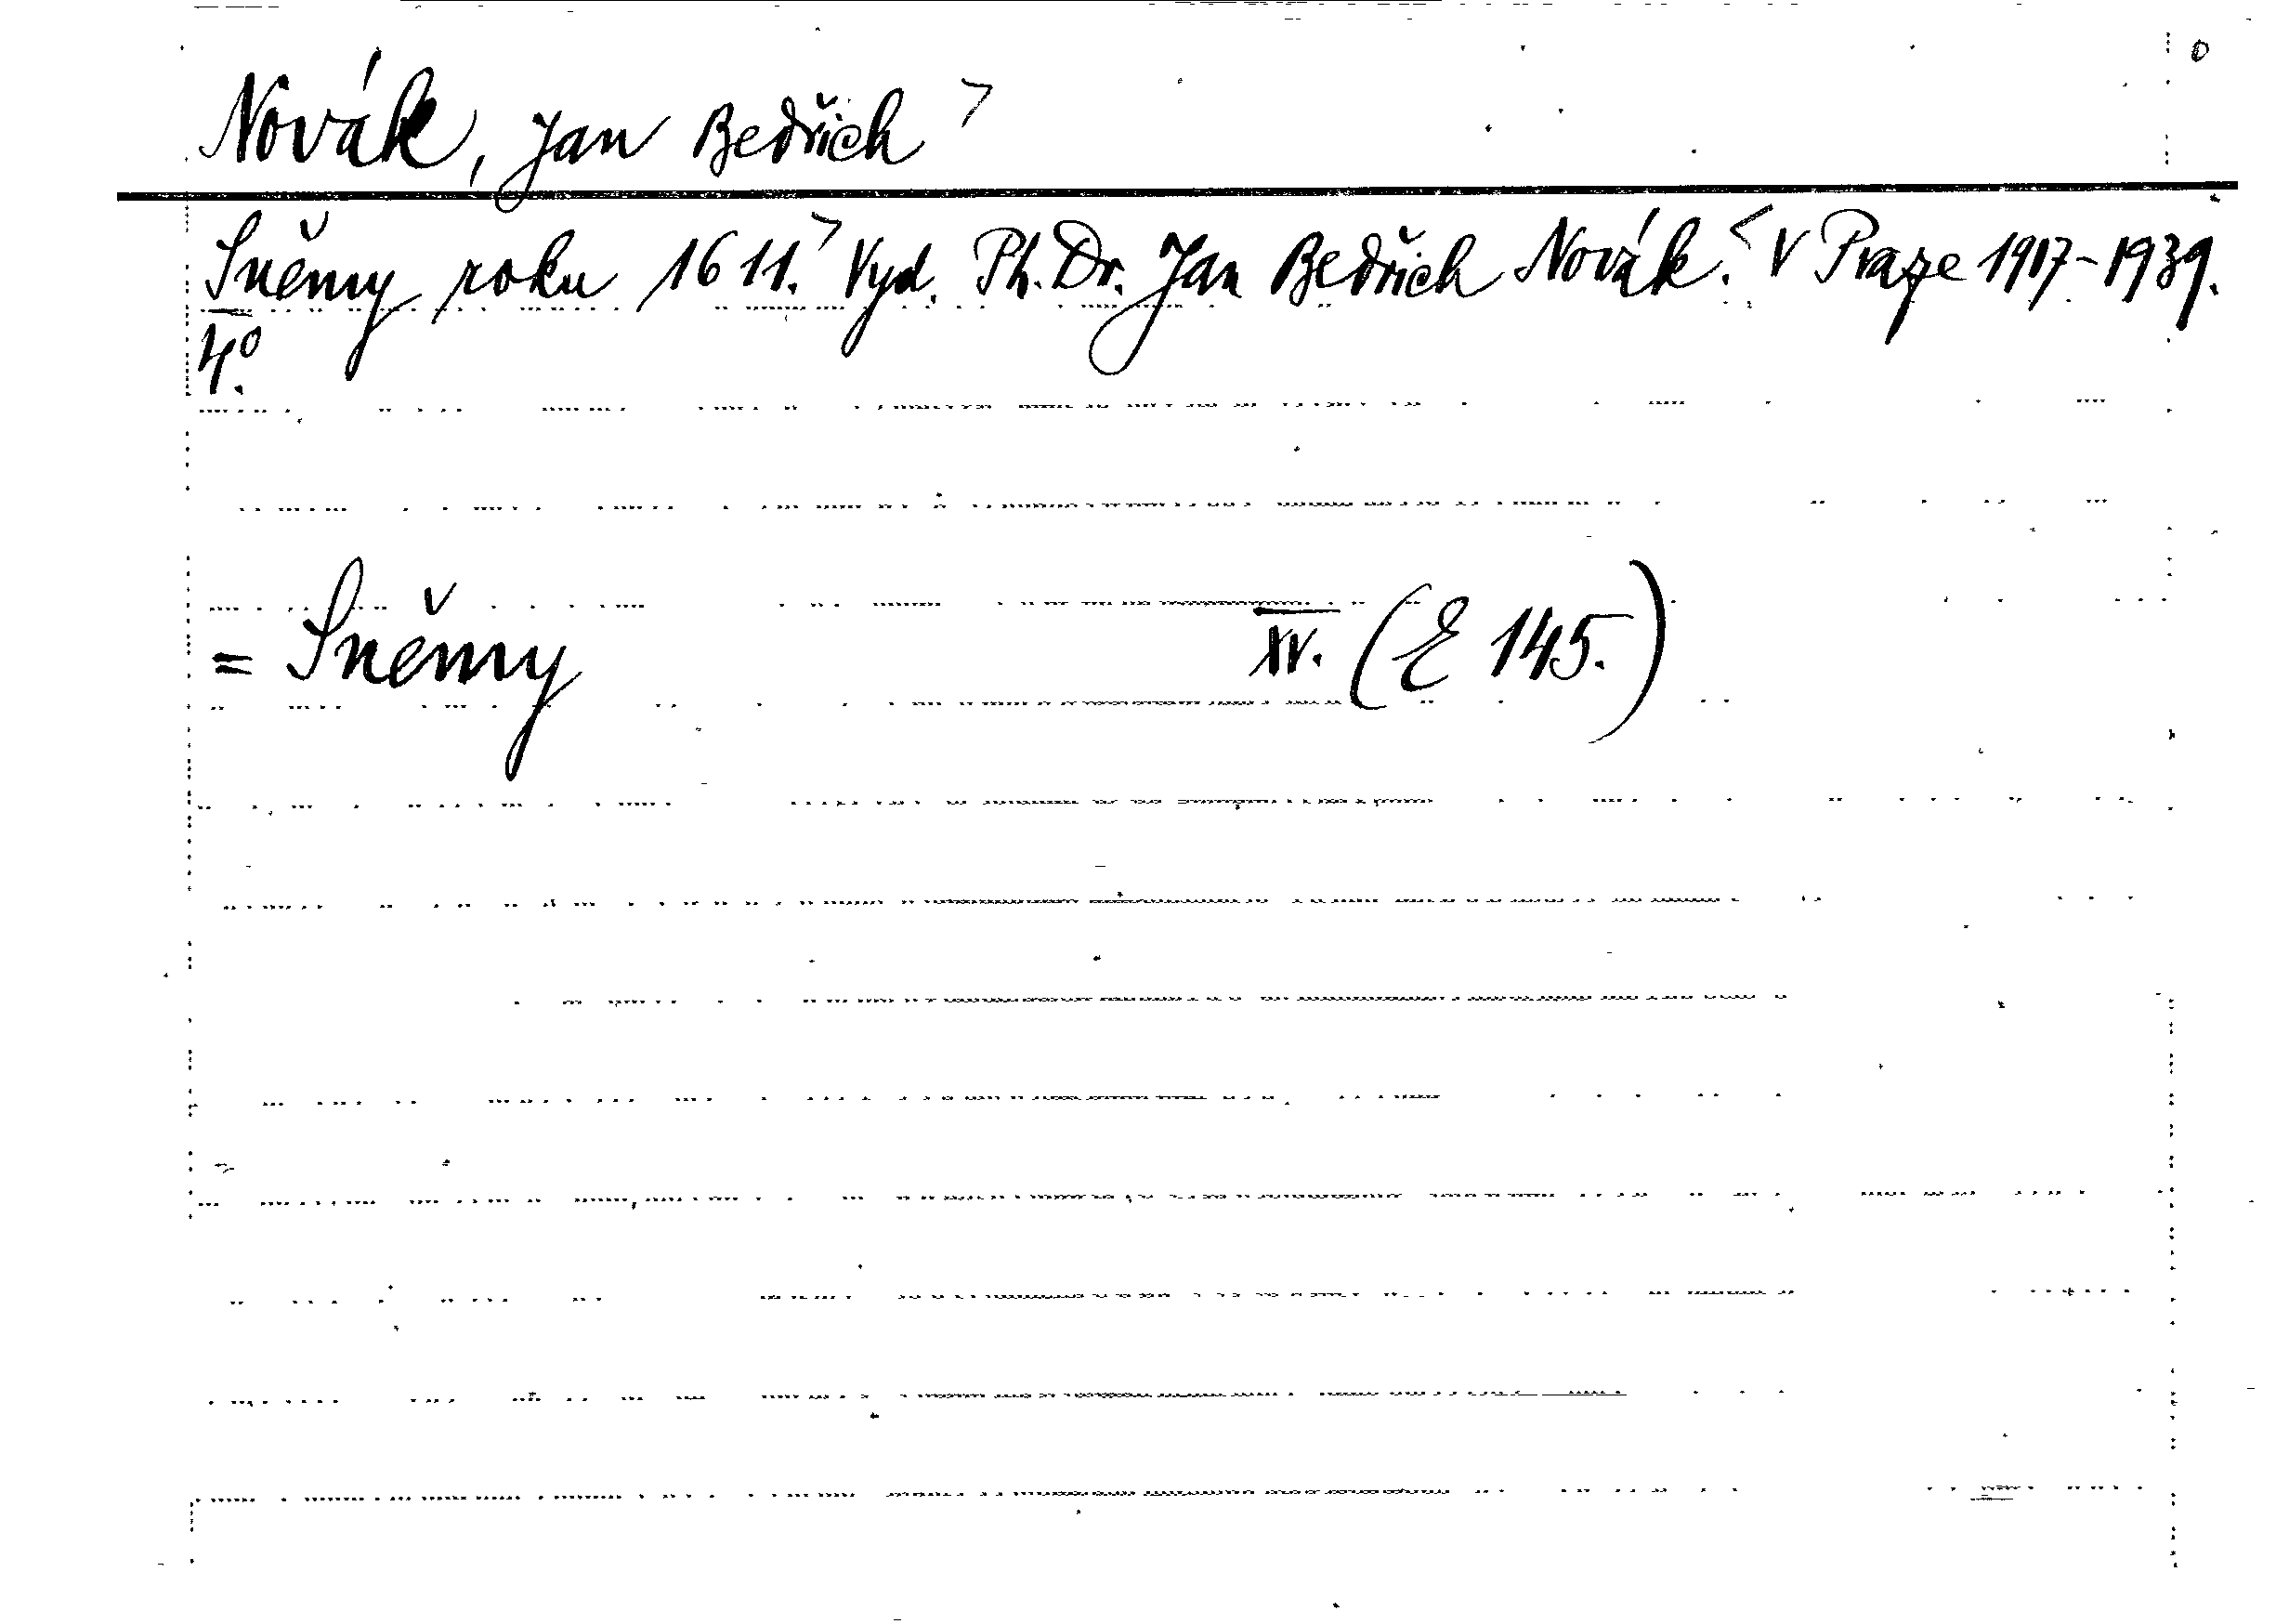 Novák, Jan Bedřich >
Sněmy roku 1611.> Vyd. Ph. Dr. Jan Bedřich Novák.< V Praze 1917-1939.
4°.
= Sněmy XV. (E 145.)